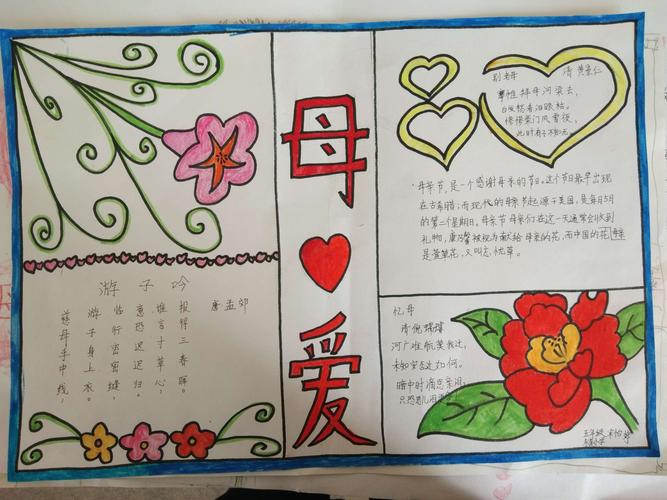 母
爱
游子吟
唐孟郊
慈母手中线,
游子身上衣。
临行密密缝,
意恐迟迟归。
谁言寸草心,
报得三春晖。
别老母 清 黄景仁
拜母河梁去,
白发愁看泪眼枯。
惨惨柴门风雪夜,
此时有子不如无。
母亲节,是一个感谢母亲的节日。这个节日最早出现
在古希腊;而现代的母亲节起源于美国,是每年5月
的第二个星期日。母亲节母亲们在这一天通常会收到
礼物,康乃馨被视为献给母亲的花,而中国的花母亲
是萱草花,又叫忘忧草。
忆母
清倪瑞璿
河广难航莫我过,
未知安否近如何。
暗中时滴思亲泪,
只恐思儿泪更多。
五年级 宋怡婷